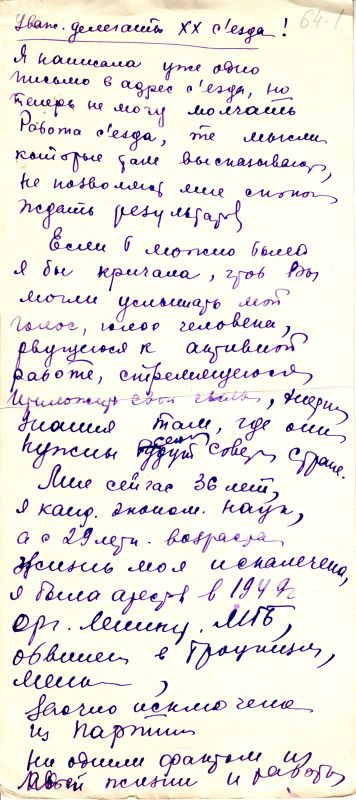 Уваж. делегаты XX с'езда!
64-1
Я написала уже одно
письмо в адрес с'езда, но
теперь не могу молчать
Работа с'езда, те мысли
которые там высказывают,
не позволяют мне спокой
ждать результатов
Если б можно было
я бы кричала, чтоб Вы
могли услышать мой
голос, голос человека,
рвущегося к активной
работе, стремящегося
приложить свои силы,
знания там, где они
нужны Совет. стране.
Мне сейчас 36 лет,
я канд. эконом. наук,
а с 29 летн. возраста
жизнь моя искалечена,
я была арестов в 1949 г
орг. Ленингр. МГБ,
обвинен в троцкизм,
заочно исключена
из партии
Ни одним фактом из
моей жизни и работы